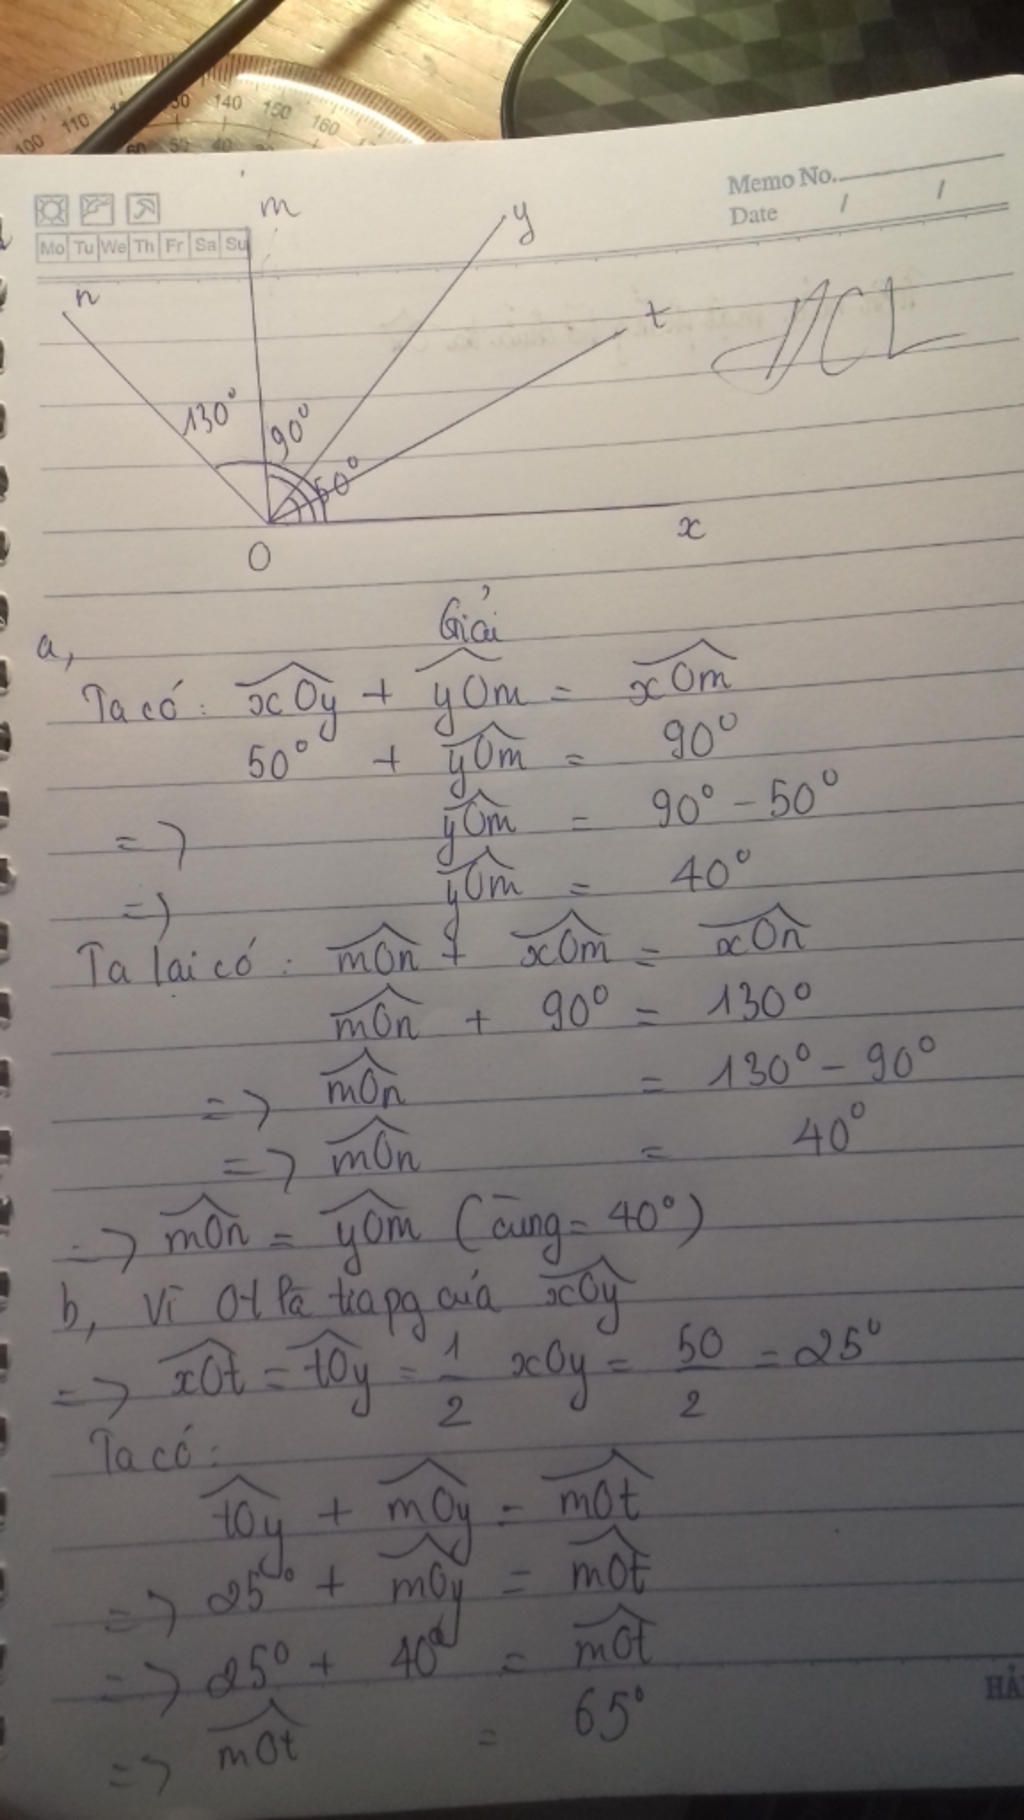 100 110 130 140 150 160
60 50 40
Memo No.
Date / /
Mo Tu We Th Fr Sa Su
m
y
n
t
130°
90°
50°
x
O
Giải
a,
Ta có: xOy + yOm = xOm
50° + yOm = 90°
=> yOm = 90° - 50°
=> yOm = 40°
Ta lại có: mOn + xOm = xOn
mOn + 90° = 130°
=> mOn = 130° - 90°
=> mOn = 40°
=> mOn = yOm (cùng = 40°)
b, Vì Ot là tiapg của xOy
=> xOt = tOy = 1/2 xOy = 50/2 = 25°
Ta có:
tOy + mOy = mOt
=> 25° + mOy = mOt
=> 25° + 40° = mOt
=> mOt = 65°
HẢ